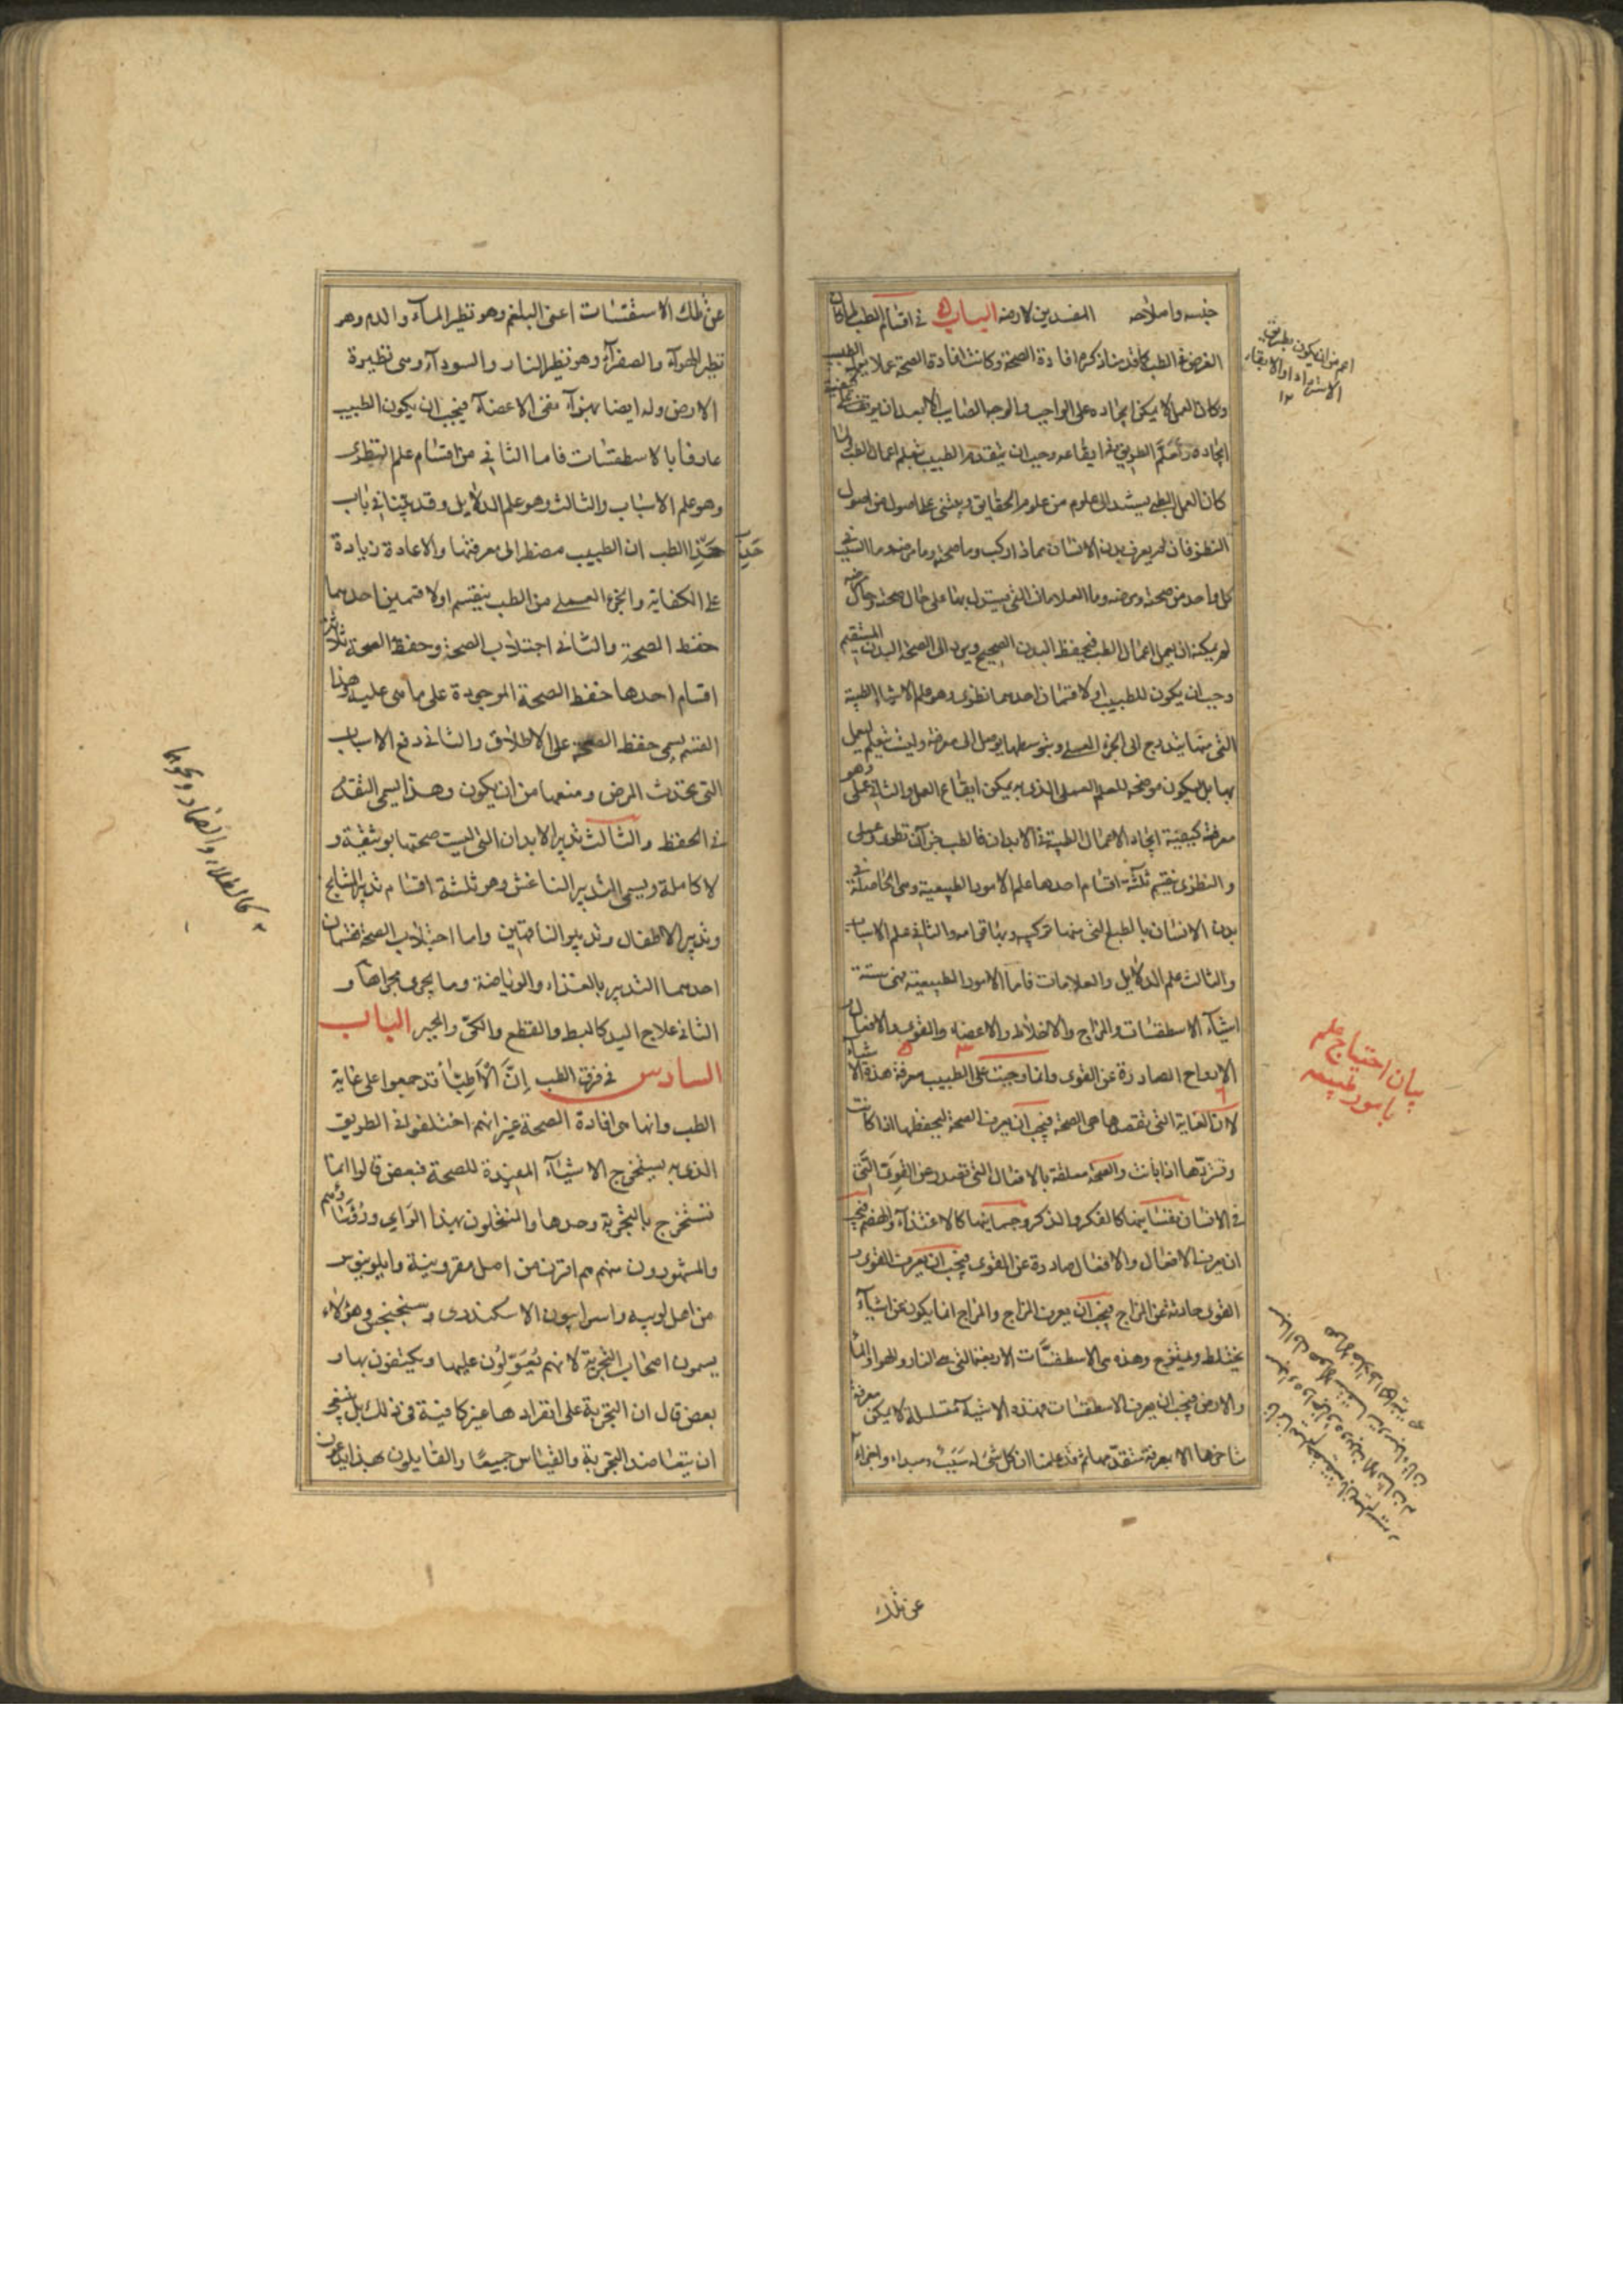 خبسه واصلاحه المفسدين لارضه الباب ٥ في اقسام الطب لما كان
الغرض في الطب كما قدمنا ذكره افادة الصحة وكانت افادة الصحة عملا يتولاه الطبيب
وكان العمل لا يمكن ايجاده على الواجب والوجه الصايب الا بعد ان يوقف على كيفية
ايجاده وتعلم الطريق في ايقاعه وجب ان يتقدم الطبيب بتعلم اعمال الطب ولما
كان العمل الطبي يستند الى علوم من علوم الحقايق ويبتنى على اصول من اصول
النظر فان لم يعرف بدن الانسان مماذا ركب وما صحته وما مرضه وما السبب في
كل واحد من صحته ومرضه وما العلامات التي يستدل بها على حال صحته وحال مرضه
لم يمكنه ان يعمل اعمال الطب فيحفظ البدن الصحيح ويرد الى الصحة البدن السقيم
وجب ان يكون للطبيب اولا قسمان احدهما نظري وهو علم الاشياء الطبية
التي منها يتدرج الى الجزء العملي وبتوسطها يوصل الى معرفته وليست تتعلم ليعمل
بها بل ليكون موضحة للعلم العملي الذي به يمكن ايقاع العمل والثاني عملي وهو
معرفة كيفية ايجاد الاعمال الطبية في الابدان فالطب جزآن نظري وعملي
والنظري ينقسم ثلثة اقسام احدها علم الامور الطبيعية وهي الحاصلة في
بدن الانسان بالطبع التي منها تركيبه وبها قوامه والثاني علم الاسباب
والثالث علم الدلايل والعلامات فاما الامور الطبيعية فهي ستة
اشيآء الاسطقسات والمزاج والاخلاط والاعضاء والقوى والافعال و
الارواح الصادرة عن القوى وانما وجبت على الطبيب معرفة هذه الاشياء
لان الغاية التي نقصدها هي الصحة فيجب ان يعرف الصحة ليحفظها اذا كانت
وتردّها اذا بانت والصحة معلقة بالافعال التي تصدر عن القوى التي
في الانسان نفسانيها كالفكر والذكر وجسمانيها كالاغتذآء والهضم فيجب
ان يعرف الافعال والافعال صادرة عن القوى فيجب ان يعرف القوى و
القوى حادثة عن المزاج فيجب ان يعرف المزاج والمزاج انما يكون عن اشيآء
يختلط ويمتزج وهذه هي الاسطقسات الاربعة التي هي النار والهوا والماء
والارض فيجب ان يعرف الاسطقسات فهذه الاشيآء متسلسلة لا يمكن معرفة
متاخرها الا بمعرفة متقدّمها ثم قد علمنا ان كل شيء له سبب ومبداء واجزاء
عن تلك
اعم من ان يكون بطريق
الاسترداد او الابقاء
١٢
بيان احتياج علم
بامور طبيعه
عن تلك الاستقسات اعنى البلغم وهو نظير المآء والدم وهو
نظير الهوآء والصفرآء وهو نظير النار والسودآء وهي نظيرة
الارض وله ايضا اجزآء هي الاعضآء فيجب ان يكون الطبيب
عارفا بالاسطقسات فاما الثاني من اقسام علم النظرى
وهو علم الاسباب والثالث وهو علم الدلايل وقد بيّنا في باب
حدّ الطب ان الطبيب مضطر الى معرفتها والاعادة زيادة
على الكفاية والجزء العملي من الطب ينقسم اولا قسمين احدهما
حفظ الصحة والثاني اجتلاب الصحة وحفظ الصحة ثلاثة
اقسام احدها حفظ الصحة الموجودة على ما هي عليه وهذا
القسم يسمى حفظ الصحة على الاطلاق والثاني دفع الاسباب
التي تحدث المرض ومنعها من ان يكون وهذا يسمى التقدم
في الحفظ والثالث تدبير الابدان التي ليست صحتها بوثيقة و
لا كاملة ويسمى التدبير الناعش وهو ثلثة اقسام تدبير المشايخ
وتدبير الاطفال وتدبير الناقهين واما اجتلاب الصحة فقسمان
احدهما التدبير بالغذاء والرياضة وما يجرى مجراها و
الثاني علاج اليد كالبط والقطع والكيّ والجبر الباب
السادس في فرق الطب إنّ الأطبّا قد جمعوا على غاية
الطب وانها هي افادة الصحة غير انهم اختلفوا في الطريق
الذي به يستخرج الاشيآء المفيدة للصحة فبعض قالوا انها
تستخرج بالتجربة وحدها والمنتحلون بهذا الراي ورؤسآؤهم
والمشهورون منهم هم اقرن من اهل مقروينية وابلونيوس
من اهل لوبيه واسرابيون الاسكندرى وسنجنجس وهؤلاء
يسمون اصحاب التجربة لانهم يُعَوِّلُون عليها ويكتفون بها و
بعض قال ان التجربة على انفرادها غير كافية في ذلك بل ينبغي
ان يتعاضد التجربة والقياس جميعًا والقايلون بهذا يدعون
حدّ
كالطلاء والضماد ونحوها